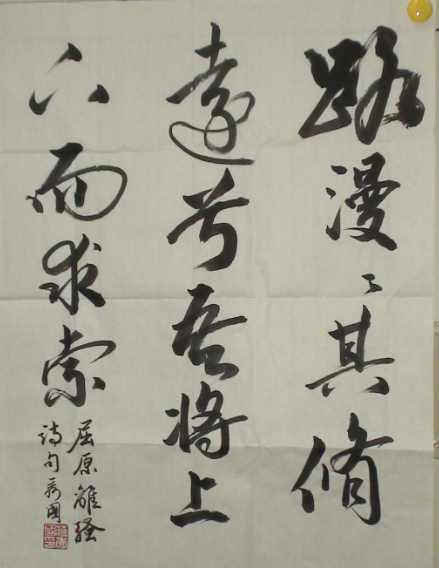 路漫〻其修
遠兮吾将上
下而求索
屈原離騷
诗句